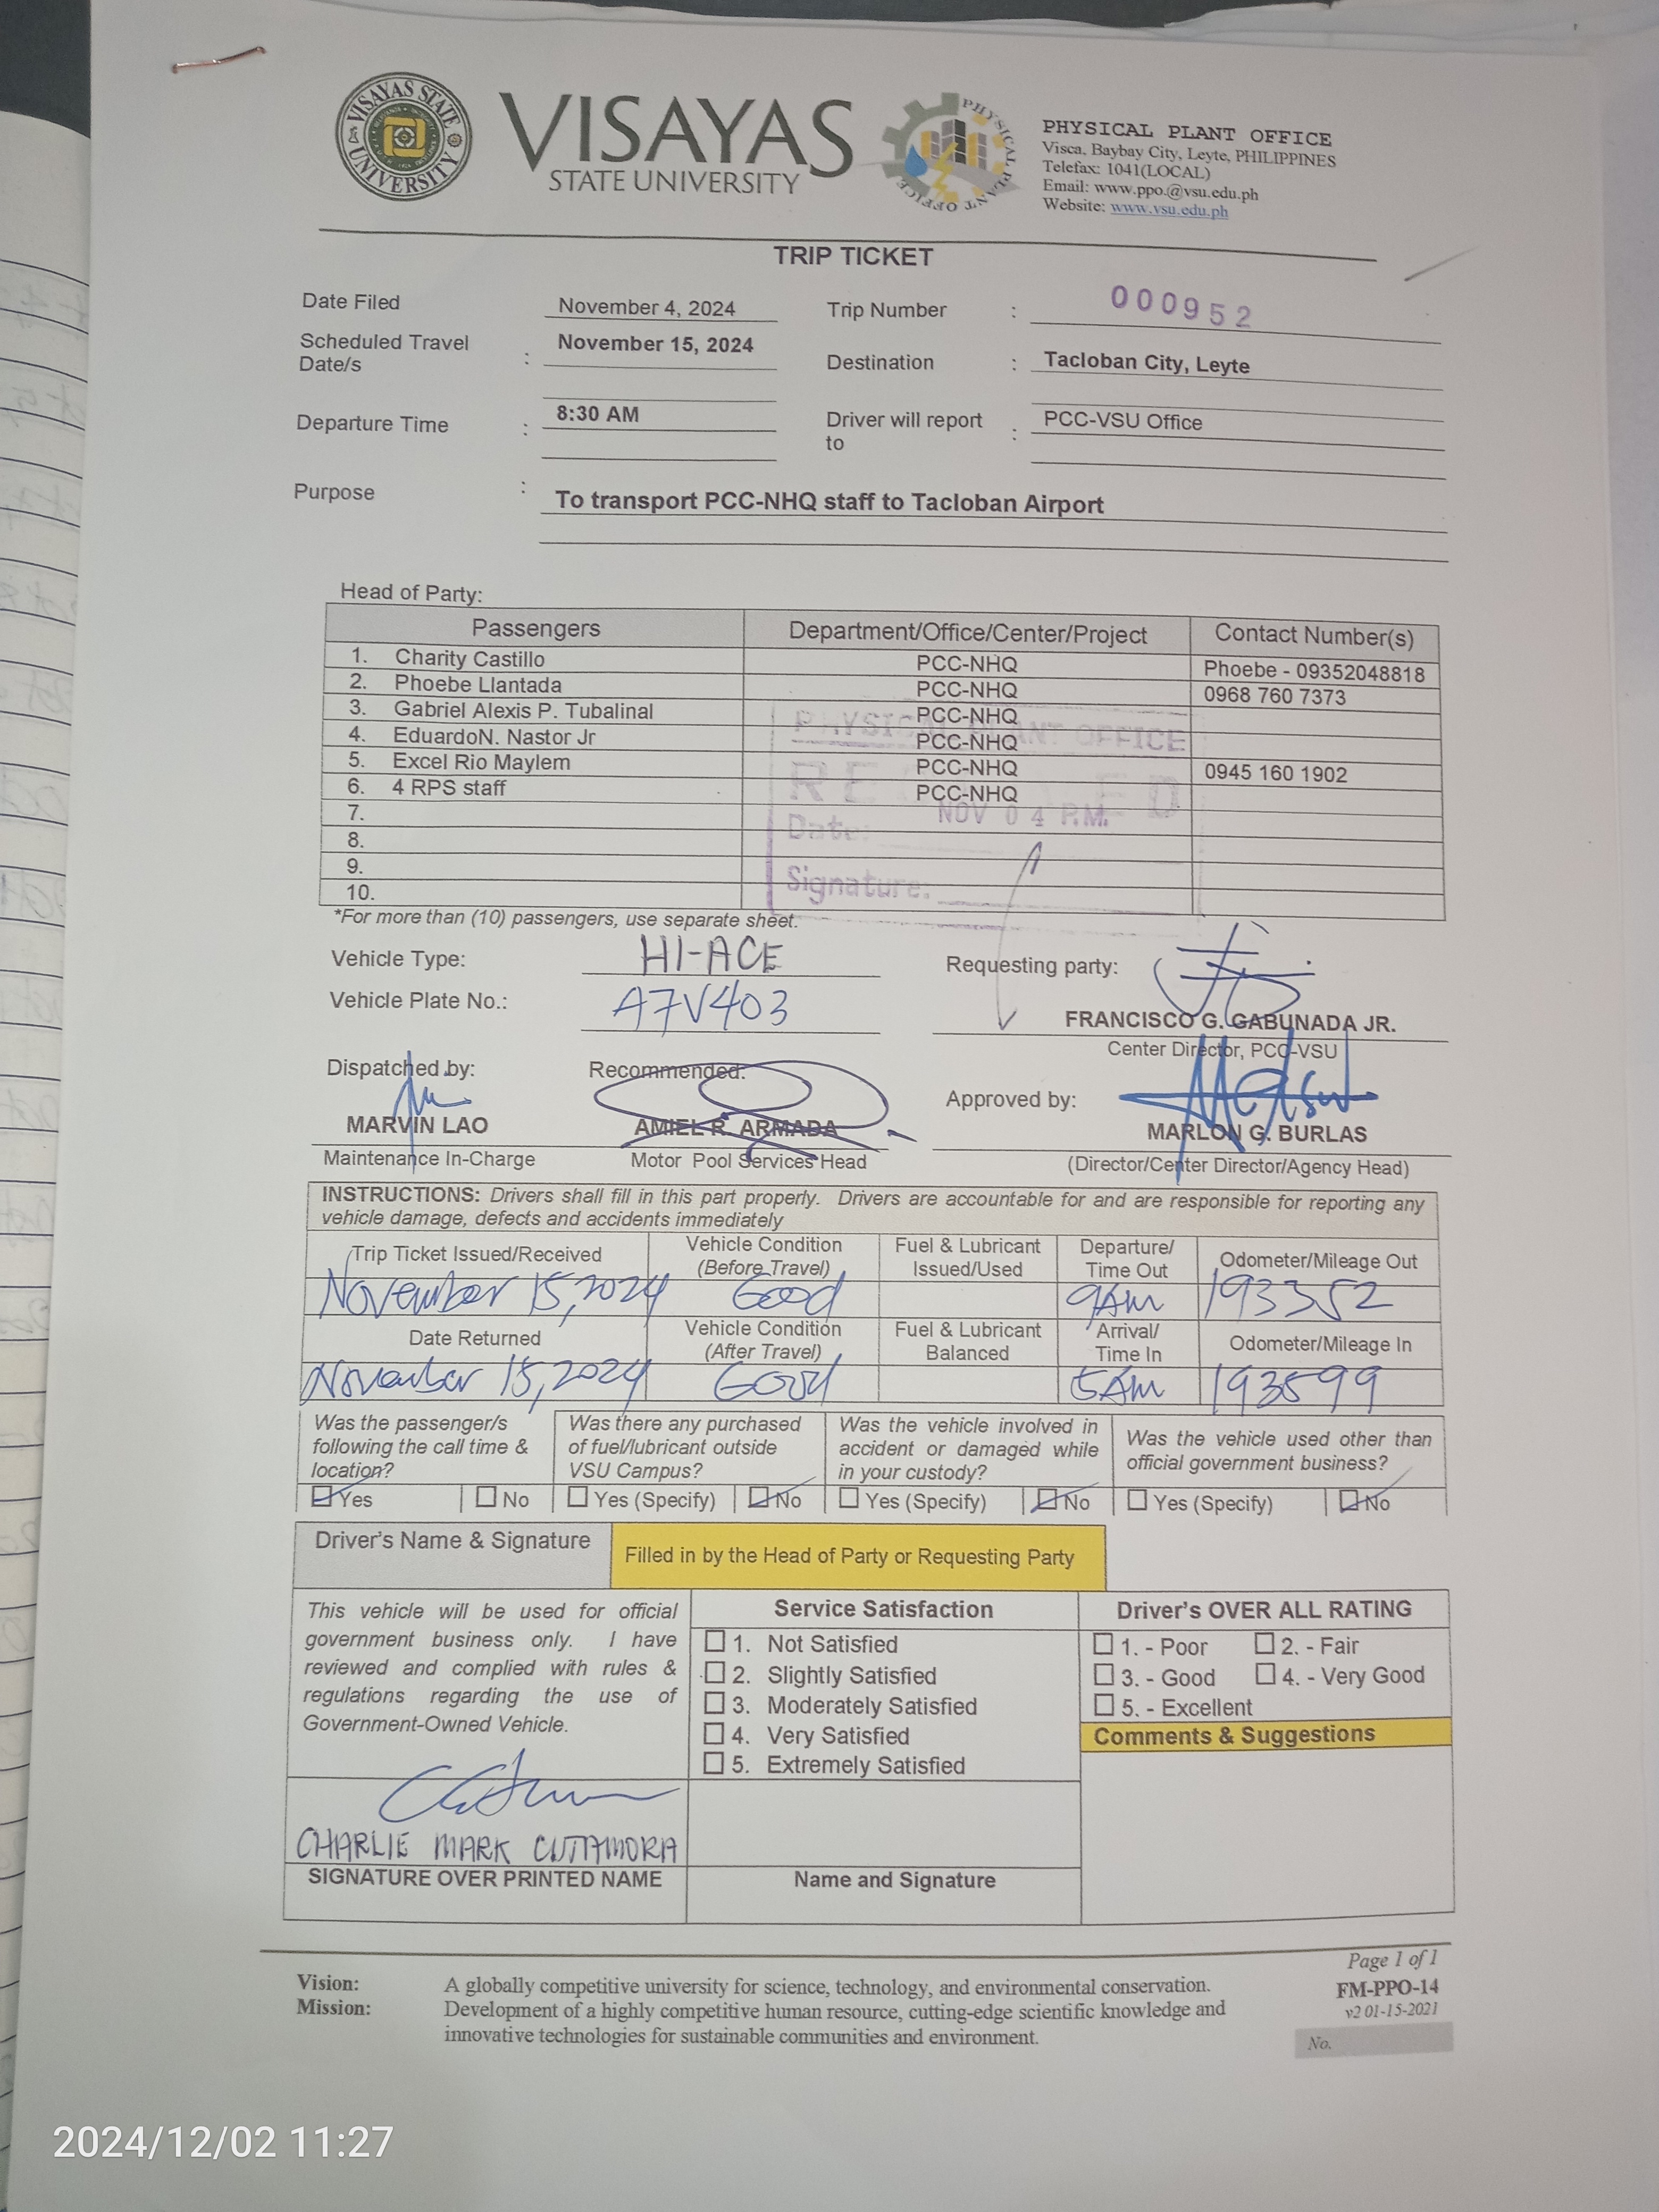 VISAYAS STATE UNIVERSITY
VISAYAS
STATE UNIVERSITY
PHYSICAL PLANT OFFICE
PHYSICAL PLANT OFFICE
Visca, Baybay City, Leyte, PHILIPPINES
Telefax: 1041(LOCAL)
Email: www.ppo.@vsu.edu.ph
Website: www.vsu.edu.ph
TRIP TICKET
Date Filed November 4, 2024 Trip Number : 000952
Scheduled Travel Date/s : November 15, 2024 Destination : Tacloban City, Leyte
Departure Time : 8:30 AM Driver will report to : PCC-VSU Office
Purpose : To transport PCC-NHQ staff to Tacloban Airport
Head of Party:
Passengers Department/Office/Center/Project Contact Number(s)
1. Charity Castillo PCC-NHQ Phoebe - 09352048818
2. Phoebe Llantada PCC-NHQ 0968 760 7373
3. Gabriel Alexis P. Tubalinal PCC-NHQ
4. EduardoN. Nastor Jr PCC-NHQ
5. Excel Rio Maylem PCC-NHQ 0945 160 1902
6. 4 RPS staff PCC-NHQ
7.
8.
9.
10.
PHYSICAL PLANT OFFICE
RECEIVED
NOV 04 P.M.
Date:
Signature:
*For more than (10) passengers, use separate sheet.
Vehicle Type: HI-ACE Requesting party:
Vehicle Plate No.: A7V403 FRANCISCO G. GABUNADA JR.
Center Director, PCC-VSU
Dispatched by: Recommended: Approved by:
MARVIN LAO AMIEL R. ARMADA MARLON G. BURLAS
Maintenance In-Charge Motor Pool Services Head (Director/Center Director/Agency Head)
INSTRUCTIONS: Drivers shall fill in this part properly. Drivers are accountable for and are responsible for reporting any
vehicle damage, defects and accidents immediately
Trip Ticket Issued/Received Vehicle Condition (Before Travel) Fuel & Lubricant Issued/Used Departure/ Time Out Odometer/Mileage Out
November 15, 2024 Good 9AM 193352
Date Returned Vehicle Condition (After Travel) Fuel & Lubricant Balanced Arrival/ Time In Odometer/Mileage In
November 15, 2024 Good 5AM 193599
Was the passenger/s following the call time & location? Was there any purchased of fuel/lubricant outside VSU Campus? Was the vehicle involved in accident or damaged while in your custody? Was the vehicle used other than official government business?
Yes No Yes (Specify) No Yes (Specify) No Yes (Specify) No
Driver's Name & Signature Filled in by the Head of Party or Requesting Party
This vehicle will be used for official
government business only. I have
reviewed and complied with rules &
regulations regarding the use of
Government-Owned Vehicle.
CHARLIE MARK CUTAMORA
SIGNATURE OVER PRINTED NAME
Service Satisfaction
1. Not Satisfied
2. Slightly Satisfied
3. Moderately Satisfied
4. Very Satisfied
5. Extremely Satisfied
Name and Signature
Driver's OVER ALL RATING
1. - Poor 2. - Fair
3. - Good 4. - Very Good
5. - Excellent
Comments & Suggestions
Page 1 of 1
Vision: A globally competitive university for science, technology, and environmental conservation. FM-PPO-14
Mission: Development of a highly competitive human resource, cutting-edge scientific knowledge and v2 01-15-2021
innovative technologies for sustainable communities and environment. No.
2024/12/02 11:27